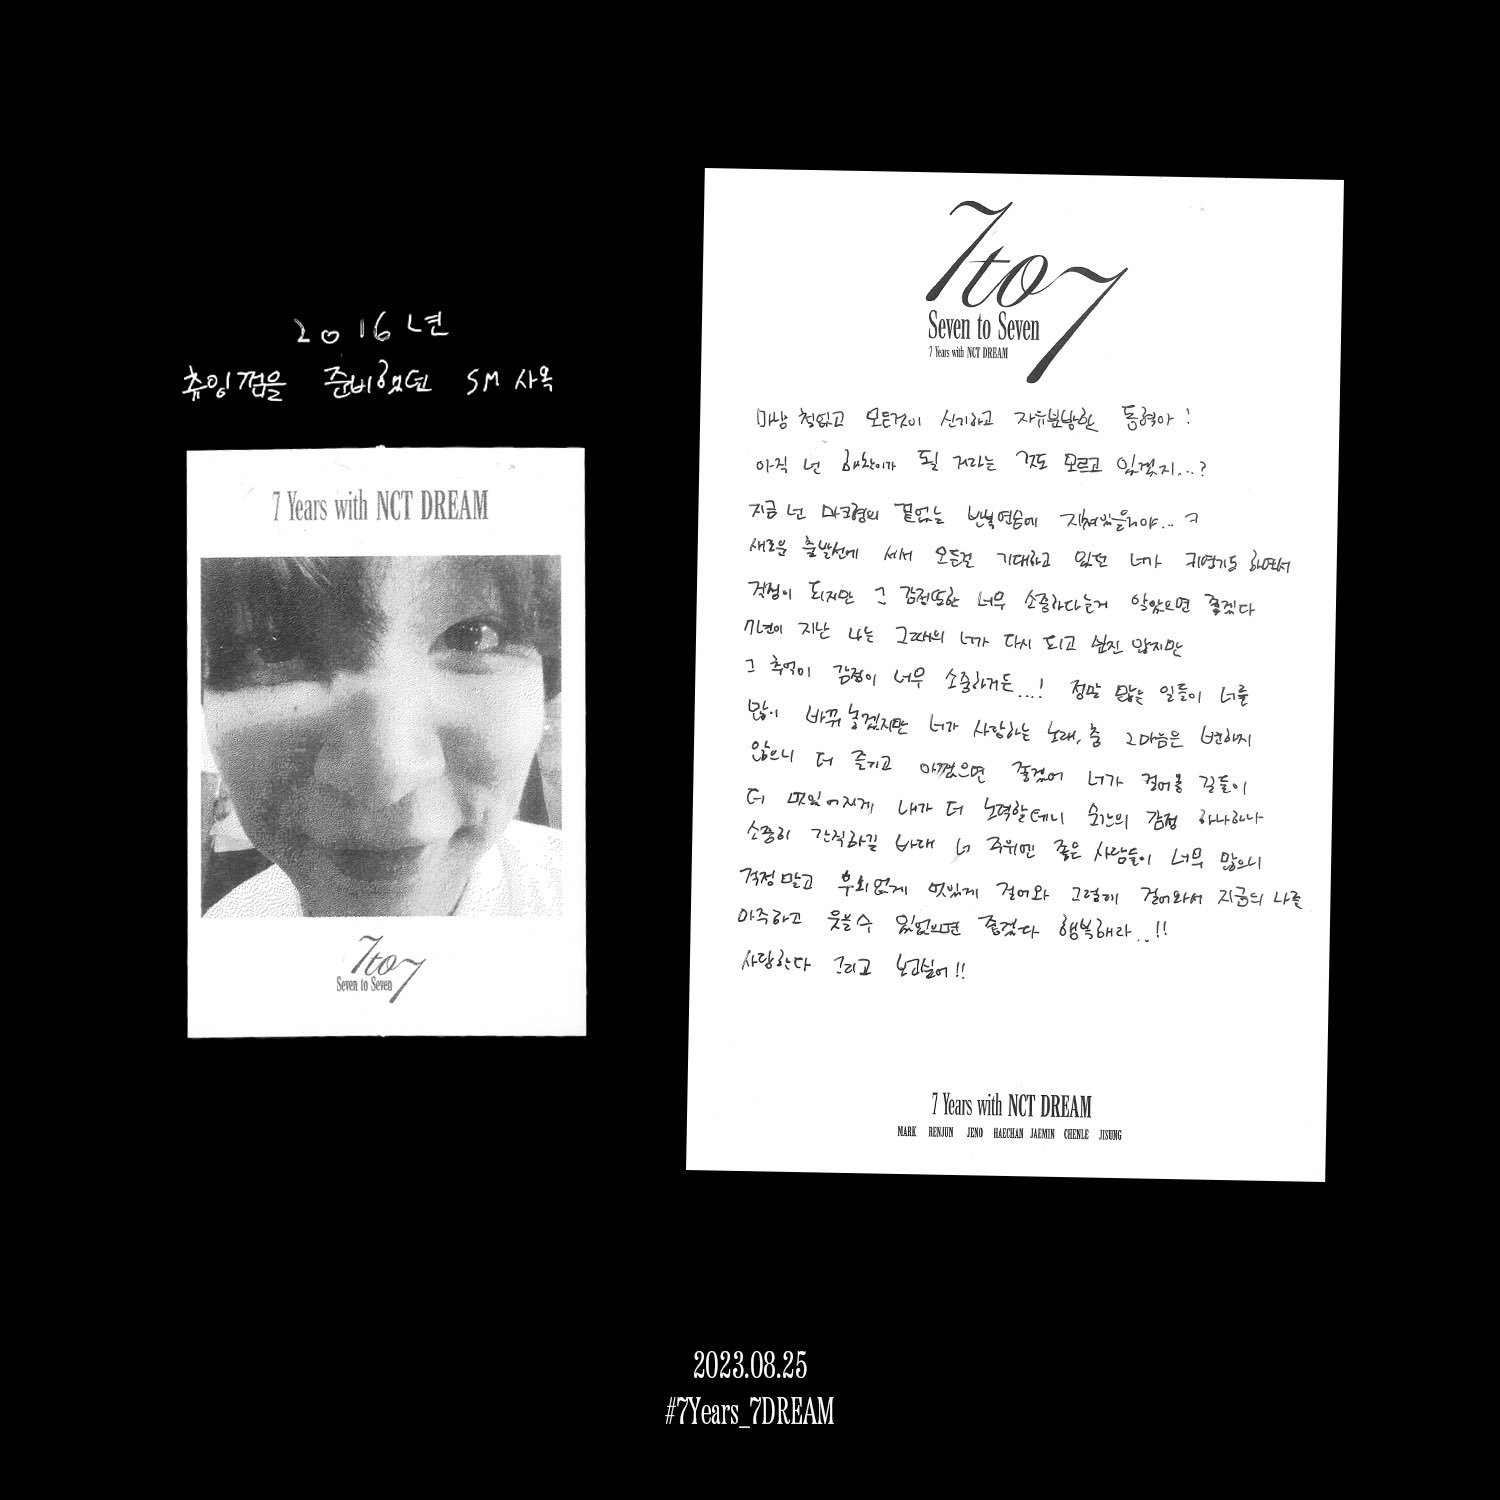 2016년
츄잉껌을 준비했던 SM 사옥
7 Years with NCT DREAM
7to7
Seven to Seven
7to7
Seven to Seven
7 Years with NCT DREAM
마냥 철없고 모든것이 신기하고 자유분방한 동혁아!
아직 넌 해찬이가 될 거라는 것도 모르고 있겠지...?
지금 넌 마크형의 끝없는 반복연습에 지쳐있을거야... ㅋ
새로운 출발선에 서서 모든걸 기대하고 있던 너가 귀엽기도 하면서
걱정이 되지만 그 감정또한 너무 소중하다는거 알았으면 좋겠다
7년이 지난 나는 그때의 너가 다시 되고 싶진 않지만
그 추억이 감정이 너무 소중하거든...! 정말 많은 일들이 너를
많이 바꿔놓겠지만 너가 사랑하는 노래, 춤 그마음은 변하지
않으니 더 즐기고 아꼈으면 좋겠어 너가 걸어올 길들이
더 멋있어지게 내가 더 노력할테니 순간의 감정 하나하나
소중히 간직하길 바래 너 주위엔 좋은 사람들이 너무 많으니
걱정말고 후회없게 멋있게 걸어와 그렇게 걸어와서 지금의 나를
마주하고 웃을수 있었으면 좋겠다 행복해라..!!
사랑한다 그리고 보고싶어!!
7 Years with NCT DREAM
MARK RENJUN JENO HAECHAN JAEMIN CHENLE JISUNG
2023.08.25
#7Years_7DREAM